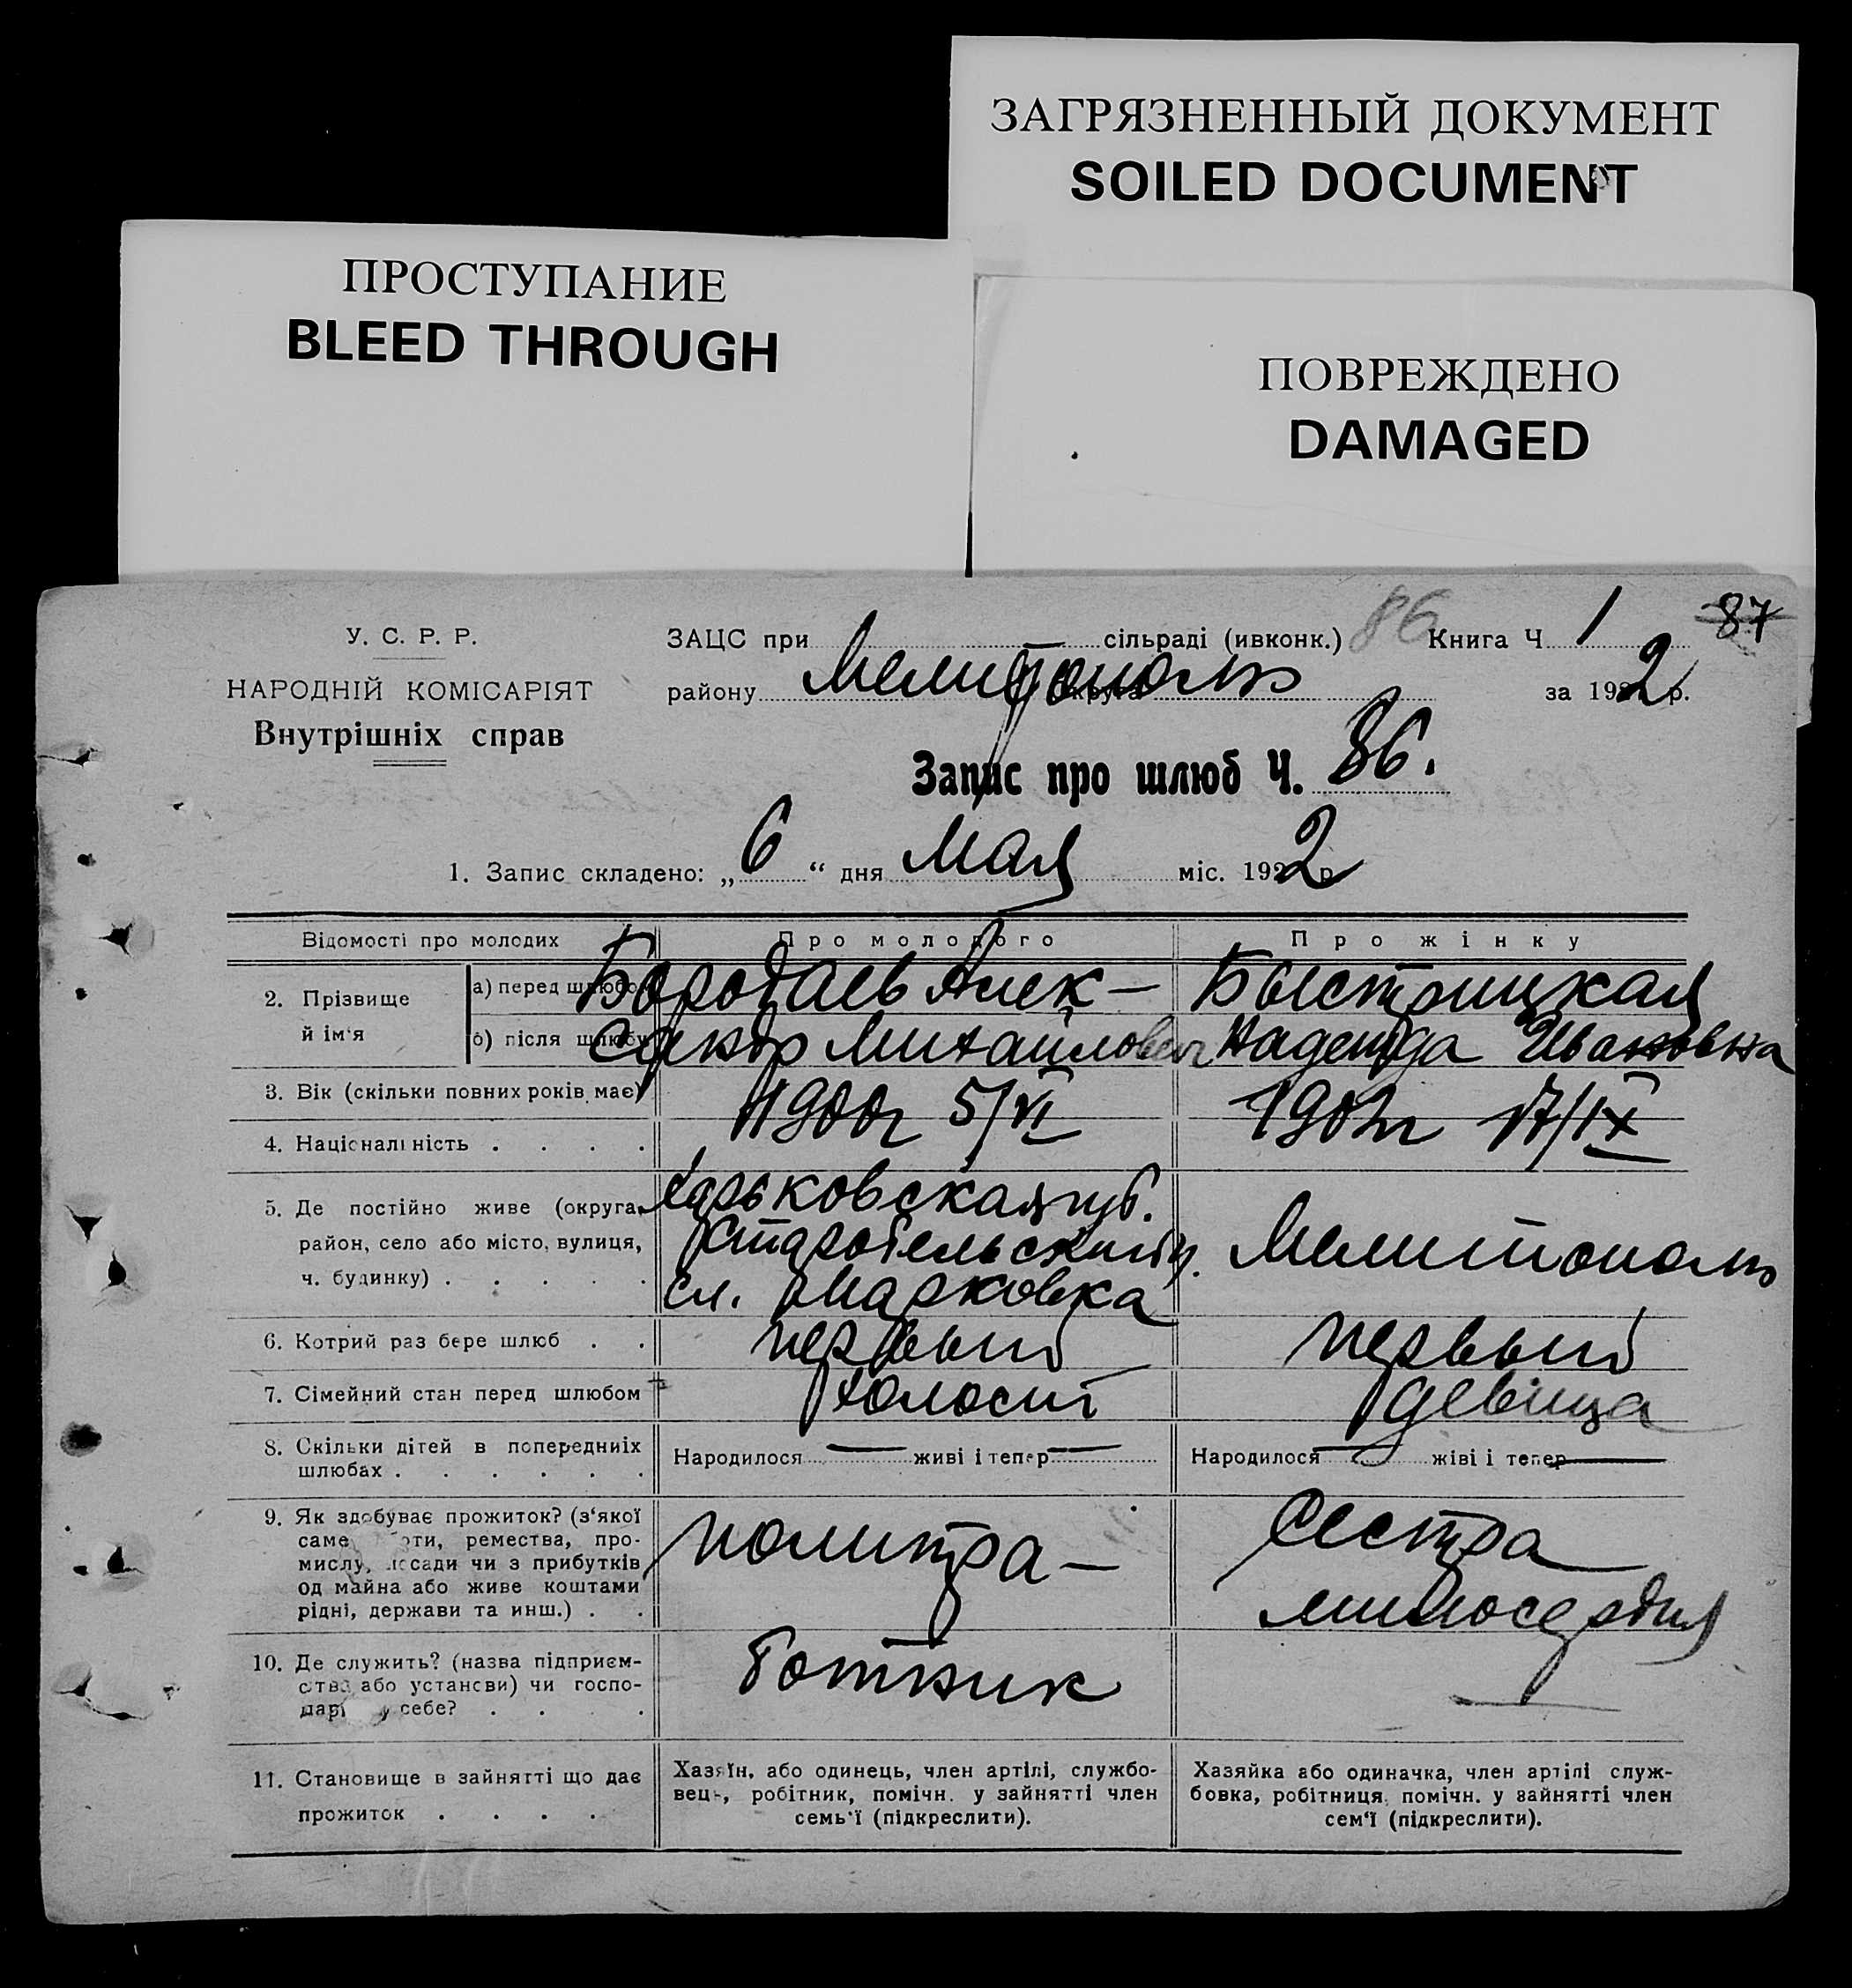 ЗАГРЯЗНЕННЫЙ ДОКУМЕНТ
SOILED DOCUMENT
ПРОСТУПАНИЕ
BLEED THROUGH
ПОВРЕЖДЕНО
DAMAGED
У. С. Р. Р.
НАРОДНІЙ КОМІСАРІЯТ
Внутрішніх справ
ЗАЦС при сільраді (ивконк.) 86 Книга Ч 1 87
району Мелитополь за 1922 р.
Запис про шлюб Ч. 86.
1. Запис складено: „6“ дня Мая міс. 1922 р.
Відомості про молодих
Про молодого
Про жінку
2. Прізвище й ім‘я
а) перед шлюбом
б) після шлюбу
Бородаев Алек-
сандр Михайлович
Быстрицкая
Надежда Ивановна
3. Вік (скільки повних років має)
4. Національність . . . .
1900г 5/VI
1902г 17/IX
5. Де постійно живе (округа,
район, село або місто, вулиця,
ч. будинку) . . . . .
Харьковская губ.
Старобельский у.
сл. Марковка
Мелитополь
6. Котрий раз бере шлюб . .
первый
первый
7. Сімейний стан перед шлюбом
холост
девица
8. Скільки дітей в попередниіх
шлюбах . . . . . .
Народилося — живі і тепер —
Народилося — жіві і тепер —
9. Як здобуває прожиток? (з‘якої
саме роботи, ремества, про-
мислу, посади чи з прибутків
од майна або живе коштами
рідні, держави та инш.) . .
политра-
Сестра
милосердия
10. Де служить? (назва підприєм-
ства або установи) чи госпо-
дарі у себе? . . . .
ботник
—
11. Становище в зайнятті що дає
прожиток . . . .
Хазяїн, або одинець, член артілі, службо-
вець, робітник, помічн. у зайнятті член
семь‘ї (підкреслити).
Хазяйка або одиначка, член артілі служ-
бовка, робітниця, помічн. у зайнятті член
сем‘ї (підкреслити).